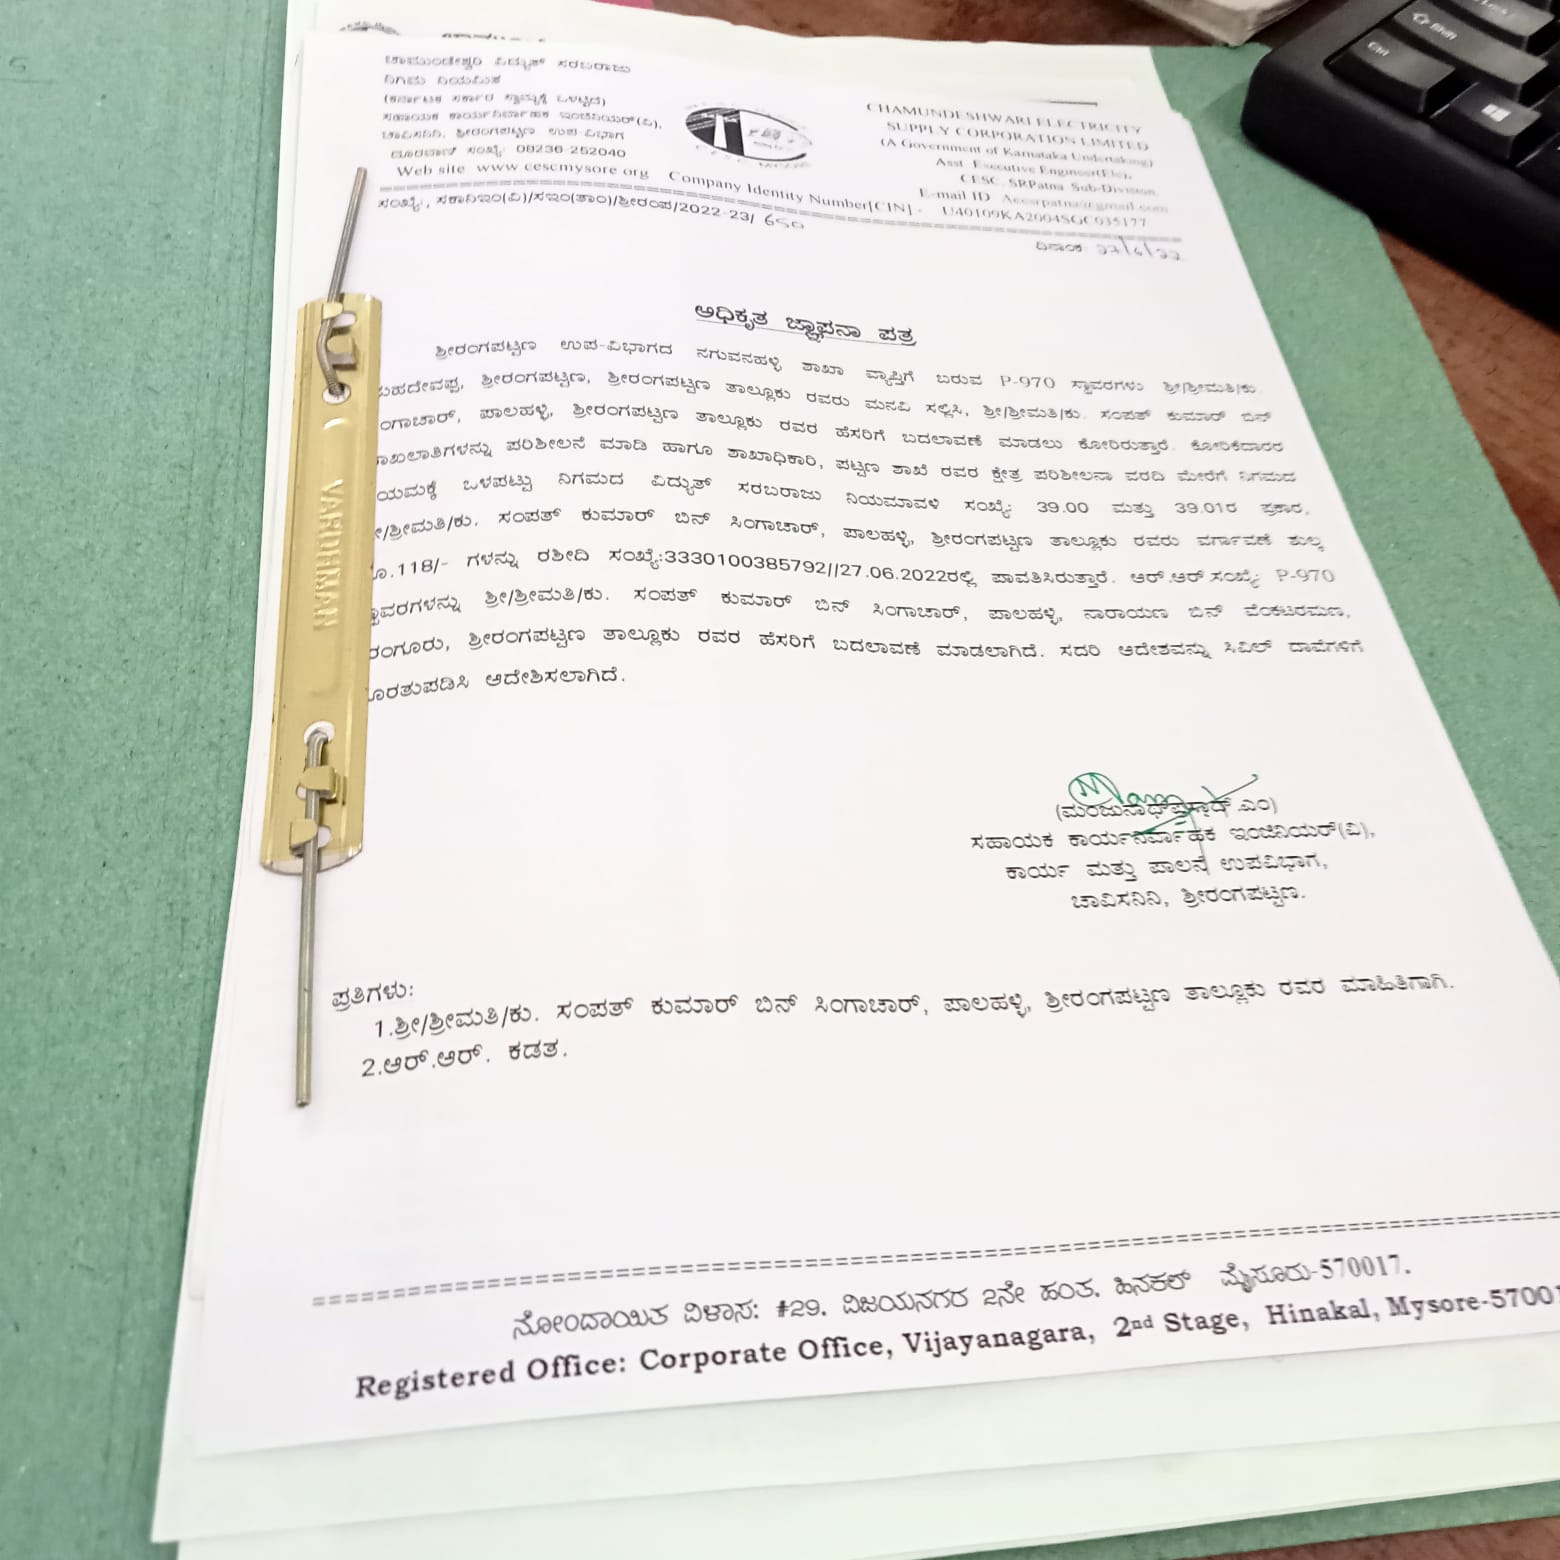 ಚಾಮುಂಡೇಶ್ವರಿ ವಿದ್ಯುತ್ ಸರಬರಾಜು
ನಿಗಮ ನಿಯಮಿತ
(ಕರ್ನಾಟಕ ಸರ್ಕಾರ ಸ್ವಾಮ್ಯಕ್ಕೆ ಒಳಪಟ್ಟಿದೆ)
ಸಹಾಯಕ ಕಾರ್ಯನಿರ್ವಾಹಕ ಇಂಜಿನಿಯರ್(ವಿ),
ಚಾವಿಸನಿನಿ, ಶ್ರೀರಂಗಪಟ್ಟಣ ಉಪ-ವಿಭಾಗ
ದೂರವಾಣಿ ಸಂಖ್ಯೆ: 08236-252040
Web site www cescmysore org
CHAMUNDESHWARI ELECTRICITY
SUPPLY CORPORATION LIMITED
(A Government of Karnataka Undertaking)
Asst. Executive Engineer(Ele),
CESC, SRPatna Sub-Division
E-mail ID Aeesrpatna@gmail.com
Company Identity Number[CIN] - U40109KA2004SGC035177
ಸಂಖ್ಯೆ:, ಸಕಾನಿಇಂ(ವಿ)/ಸಇಂ(ತಾಂ)/ಶ್ರೀರಂಪ/2022-23/ 650
ದಿನಾಂಕ: 27/6/22
ಅಧಿಕೃತ ಜ್ಞಾಪನಾ ಪತ್ರ
ಶ್ರೀರಂಗಪಟ್ಟಣ ಉಪ-ವಿಭಾಗದ ನಗುವನಹಳ್ಳಿ ಶಾಖಾ ವ್ಯಾಪ್ತಿಗೆ ಬರುವ P-970 ಸ್ಥಾವರಗಳು ಶ್ರೀ/ಶ್ರೀಮತಿ/ಕು.
ಮಹದೇವಪ್ಪ, ಶ್ರೀರಂಗಪಟ್ಟಣ, ಶ್ರೀರಂಗಪಟ್ಟಣ ತಾಲ್ಲೂಕು ರವರು ಮನವಿ ಸಲ್ಲಿಸಿ, ಶ್ರೀ/ಶ್ರೀಮತಿ/ಕು. ಸಂಪತ್ ಕುಮಾರ್ ಬಿನ್
ಂಗಾಚಾರ್, ಪಾಲಹಳ್ಳಿ, ಶ್ರೀರಂಗಪಟ್ಟಣ ತಾಲ್ಲೂಕು ರವರ ಹೆಸರಿಗೆ ಬದಲಾವಣೆ ಮಾಡಲು ಕೋರಿರುತ್ತಾರೆ. ಕೋರಿಕೆದಾರರ
ಾಖಲಾತಿಗಳನ್ನು ಪರಿಶೀಲನೆ ಮಾಡಿ ಹಾಗೂ ಶಾಖಾಧಿಕಾರಿ, ಪಟ್ಟಣ ಶಾಖೆ ರವರ ಕ್ಷೇತ್ರ ಪರಿಶೀಲನಾ ವರದಿ ಮೇರೆಗೆ ನಿಗಮದ
ಯಮಕ್ಕೆ ಒಳಪಟ್ಟು ನಿಗಮದ ವಿದ್ಯುತ್ ಸರಬರಾಜು ನಿಯಮಾವಳಿ ಸಂಖ್ಯೆ: 39.00 ಮತ್ತು 39.01ರ ಪ್ರಕಾರ,
ೀ/ಶ್ರೀಮತಿ/ಕು. ಸಂಪತ್ ಕುಮಾರ್ ಬಿನ್ ಸಿಂಗಾಚಾರ್, ಪಾಲಹಳ್ಳಿ, ಶ್ರೀರಂಗಪಟ್ಟಣ ತಾಲ್ಲೂಕು ರವರು ವರ್ಗಾವಣೆ ಶುಲ್ಕ
ೂ.118/- ಗಳನ್ನು ರಶೀದಿ ಸಂಖ್ಯೆ:3330100385792//27.06.2022ರಲ್ಲಿ ಪಾವತಿಸಿರುತ್ತಾರೆ. ಆರ್.ಆರ್.ಸಂಖ್ಯೆ: P-970
ಸ್ಥಾವರಗಳನ್ನು ಶ್ರೀ/ಶ್ರೀಮತಿ/ಕು. ಸಂಪತ್ ಕುಮಾರ್ ಬಿನ್ ಸಿಂಗಾಚಾರ್, ಪಾಲಹಳ್ಳಿ, ನಾರಾಯಣ ಬಿನ್ ವೆಂಕಟರಮಣ,
ರಂಗೂರು, ಶ್ರೀರಂಗಪಟ್ಟಣ ತಾಲ್ಲೂಕು ರವರ ಹೆಸರಿಗೆ ಬದಲಾವಣೆ ಮಾಡಲಾಗಿದೆ. ಸದರಿ ಆದೇಶವನ್ನು ಸಿವಿಲ್ ದಾವೆಗಳಿಗೆ
ೊರತುಪಡಿಸಿ ಆದೇಶಿಸಲಾಗಿದೆ.
(ಮಂಜುನಾಥ್‌ಪ್ರಸಾದ್.ಎಂ)
ಸಹಾಯಕ ಕಾರ್ಯನಿರ್ವಾಹಕ ಇಂಜಿನಿಯರ್(ವಿ),
ಕಾರ್ಯ ಮತ್ತು ಪಾಲನೆ ಉಪವಿಭಾಗ,
ಚಾವಿಸನಿನಿ, ಶ್ರೀರಂಗಪಟ್ಟಣ.
ಪ್ರತಿಗಳು:
1.ಶ್ರೀ/ಶ್ರೀಮತಿ/ಕು. ಸಂಪತ್ ಕುಮಾರ್ ಬಿನ್ ಸಿಂಗಾಚಾರ್, ಪಾಲಹಳ್ಳಿ, ಶ್ರೀರಂಗಪಟ್ಟಣ ತಾಲ್ಲೂಕು ರವರ ಮಾಹಿತಿಗಾಗಿ.
2.ಆರ್.ಆರ್. ಕಡತ.
ನೋಂದಾಯಿತ ವಿಳಾಸ: #29, ವಿಜಯನಗರ 2ನೇ ಹಂತ, ಹಿನಕಲ್ ಮೈಸೂರು-570017.
Registered Office: Corporate Office, Vijayanagara, 2nd Stage, Hinakal, Mysore-57001
VARDHMAN
Shift
Ctrl